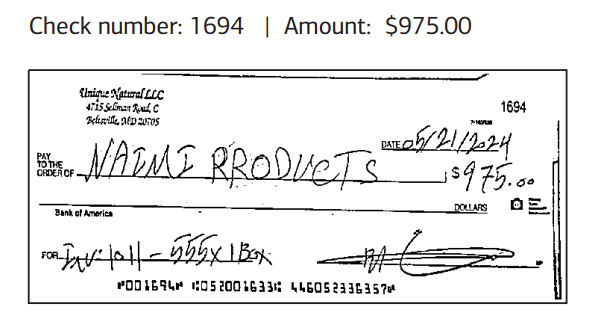 Check number: 1694 | Amount: $975.00
Unique Natural LLC
4715 Sellman Road, C
Beltsville, MD 20705
1694
DATE 05/21/2024
PAY TO THE ORDER OF NAIMI PRODUCTS $975.00
DOLLARS
Bank of America
FOR Inv-1011-555x1Box
⑈001694⑈ ⑆052001633⑆ 446052336357⑈